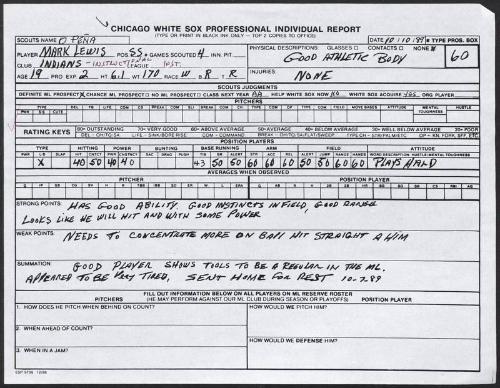 CHICAGO WHITE SOX PROFESSIONAL INDIVIDUAL REPORT
(TYPE OR PRINT IN BLACK INK ONLY - TOP 2 COPIES TO OFFICE)
SCOUTS NAME O PEÑA DATE 10-10-89 TYPE PROS. SOX
PLAYER MARK LEWIS POS SS GAMES SCOUTED 4 INN. PIT.
PHYSICAL DESCRIPTIONS: GLASSES CONTACTS NONE
GOOD ATHLETIC BODY 60
CLUB INDIANS - INSTRUCTIONAL LEAGUE INST.
AGE 19 PRO EXP 2 HT 6.1 WT 170 RACE W B R T R
INJURIES: NONE
SCOUTS JUDGMENTS
DEFINITE ML PROSPECT X CHANCE ML PROSPECT NO ML PROSPECT CLASS NEXT YEAR AA HELP WHITE SOX NOW NO WHITE SOX ACQUIRE YES ORG PLAYER
PITCHERS
RATING KEYS
80 - OUTSTANDING 70 - VERY GOOD 60 - ABOVE AVERAGE 50 - AVERAGE 40 - BELOW AVERAGE 30 - WELL BELOW AVERAGE 20 - POOR
POSITION PLAYERS
TYPE HITTING POWER BUNTING BASE RUNNING ARM FIELD ATTITUDE
X 40 50 40 40 43 50 60 60 60 50 50 60 60 PLAYS HARD
AVERAGES WHEN OBSERVED
PITCHER POSITION PLAYER
STRONG POINTS: HAS GOOD ABILITY, GOOD INSTINCTS IN FIELD, GOOD RANGE
LOOKS LIKE HE WILL HIT AND WITH SOME POWER
WEAK POINTS: NEEDS TO CONCENTRATE MORE ON BALL HIT STRAIGHT A HIM
SUMMATION: GOOD PLAYER SHOWS TOOLS TO BE A REGULAR IN THE ML.
APPEARED TO BE VERY TIRED, SENT HOME FOR REST 10-7-89
FILL OUT INFORMATION BELOW FOR ANY PLAYER ON ML RESERVE ROSTER
PITCHERS (HE MAY PERFORM AGAINST OUR ML CLUB DURING SEASON OR PLAYOFFS) POSITION PLAYER
1. HOW DOES HE PITCH WHEN BEHIND ON COUNT? HOW WOULD WE PITCH HIM?
2. WHEN AHEAD OF COUNT?
HOW WOULD WE DEFENSE HIM?
3. WHEN IN A JAM?